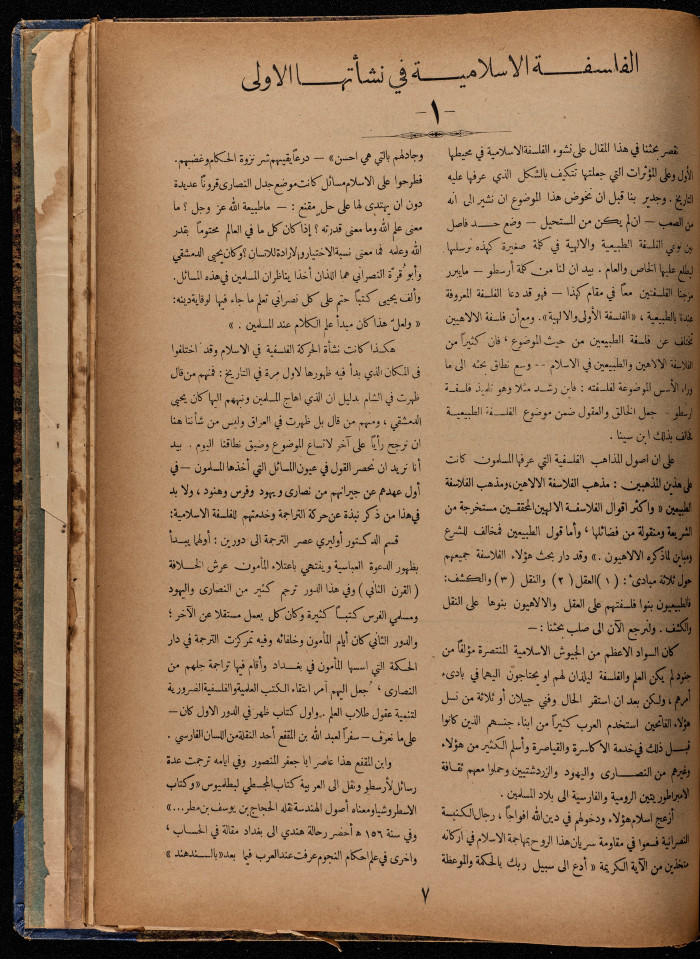 الفلسفة الاسلامية في نشأتها الاولى
-١-
نقصر بحثنا في هذا المقال على نشوء الفلسفة الاسلامية في محيطها
الأول وعلى المؤثرات التي جعلتها تتكيف بالشكل الذي عرفها عليه
التاريخ . وجدير بنا قبل ان نخوض هذا الموضوع ان نشير الى أنه
من الصعب – ان لم يكن من المستحيل – وضع حد فاصل
بين نوعي الفلسفة الطبيعية والالهية في كلمة صغيرة كهذه نرسلها
ليطلع عليها الخاص والعام . بيد ان لنا من كلمة أرسطو – مايبرر
مزجنا الفلسفتين معاً في مقام كهذا – فهو قد دعا الفلسفة المعروفة
عندنا بالطبيعية ، «الفلسفة الأولى والالهية» . ومع أن فلسفة الالاهيين
تختلف عن فلسفة الطبيعيين من حيث الموضوع ، فان كثيراً من
فلاسفة الالاهيين والطبيعيين في الاسلام – وسع نطاق بحثه الى ما
وراء الأسس الموضوعة لفلسفته : فابن رشد مثلا وهو تلميذ فلسفة
أرسطو – جعل الخالق والعقول ضمن موضوع الفلسفة الطبيعية
فخالف بذلك ابن سينا .
على ان اصول المذاهب الفلسفية التي عرفها المسلمون كانت
على هذين المذهبين : مذهب الفلاسفة الالاهيين، ومذهب الفلاسفة
الطبيعيين « واكثر اقوال الفلاسفة الالهين المحققين مستخرجة من
الشريعة ومنقولة من فضائلها ، وأما قول الطبيعيين فمخالف للشرع
ومباين لما ذكره الالاهيون . » وقد دار بحث هؤلاء الفلاسفة جميعهم
حول ثلاثة مبادىء : (١) العقل (٢) والنقل (٣) والكشف:
فالطبيعيون بنوا فلسفتهم على العقل والالاهيون بنوها على النقل
والكشف . ولنرجع الآن الى صلب بحثنا : –
كان السواد الاعظم من الجيوش الاسلامية المنتصرة مؤلفاً من
جنود لم يكن العلم والفلسفة ليلذان لهم او يحتاجون اليهما في بادىء
أمرهم ، ولكن بعد ان استقر الحال وفني جيلان أو ثلاثة من نسل
هؤلاء الفاتحين استخدم العرب كثيراً من ابناء جنسهم الذين كانوا
قبل ذلك في خدمة الأكاسرة والقياصرة وأسلم الكثير من هؤلاء
وغيرهم من النصارى واليهود والزردشتيين وحملوا معهم ثقافة
الامبراطوريتين الرومية والفارسية الى بلاد المسلمين .
أزعج اسلام هؤلاء ودخولهم في دين الله افواجاً ، رجال الكنيسة
النصرانية فسعوا في مقاومة سريان هذا الروح بمهاجمة الاسلام في اركانه
متخذين من الآية الكريمة « أدع الى سبيل ربك بالحكمة والموعظة
وجادلهم بالتي هي احسن » – درعاً يقيهم شر نزوة الحكام وغضبهم.
فطرحوا على الاسلام مسائل كانت موضع جدل النصارى قروناً عديدة
دون ان يهتدى لها على حل مقنع : – ماطبيعة الله عز وجل ؟ ما
معنى علم الله وما معنى قدرته ؟ إذا كان كل ما في العالم محتوماً بقدر
الله وعلمه فما معنى نسبة الاختيار والارادة للانسان ؟ وكان يحيى الدمشقي
وأبو قرّة النصراني هما اللذان أخذا يناظران المسلمين في هذه المسائل.
وألف يحيى كتباً حتم على كل نصراني تعلم ما جاء فيها لوقاية دينه:
« ولعلّ هذا كان مبدأ علم الكلام عند المسلمين . »
هكذا كانت نشأة الحركة الفلسفية في الاسلام وقد اختلفوا
في المكان الذي بدأ فيه ظهورها لاول مرة في التاريخ : فمنهم من قال
ظهرت في الشام بدليل ان الذي اهاج المسلمين ونبههم اليها كان يحيى
الدمشقي ، ومنهم من قال بل ظهرت في العراق وليس من شأننا هنا
ان نرجح رأياً على آخر لاتساع الموضوع وضيق نطاقنا اليوم . بيد
أنا نريد ان نحصر القول في عيون المسائل التي أخذها المسلمون – في
أول عهدهم عن جيرانهم من نصارى ويهود وفرس وهنود ، ولا بد
في هذا من ذكر نبذة عن حركة التراجمة وخدمتهم للفلسفة الاسلامية:
قسم الدكتور أوليري عصر الترجمة الى دورين : أولهما يبدأ
بظهور الدعوة العباسية وينتهي باعتلاء المأمون عرش الخلافة
( القرن الثاني ) وفي هذا الدور ترجم كثير من النصارى واليهود
ومسلمي الفرس كتباً كثيرة وكان كل يعمل مستقلا عن الآخر ؛
والدور الثاني كان أيام المأمون وخلفائه وفيه تمركزت الترجمة في دار
الحكمة التي اسسها المأمون في بغداد وأقام فيها تراجمة جلهم من
النصارى ، جُعل اليهم أمر انتقاء الكتب العلمية والفلسفية الضرورية
لتنمية عقول طلاب العلم . واول كتاب ظهر في الدور الاول كان –
على ما نعرف – سفراً لعبد الله بن المقفع أحد النقلة من اللسان الفارسي .
وابن المقفع هذا عاصر ابا جعفر المنصور وفي ايامه ترجمت عدة
رسائل لأرسطو ونقل الى العربية كتاب المجسطي لبطلميوس «وكتاب
الاسطروشيا ومعناه أصول الهندسة نقله الحجاج بن يوسف بن مطر...»
وفي سنة ١٥٦ أحضر رحالة هندي الى بغداد مقالة في الحساب ،
واخرى في علم احكام النجوم عرفت عند العرب فيما بعد «بالسند هند »
٧